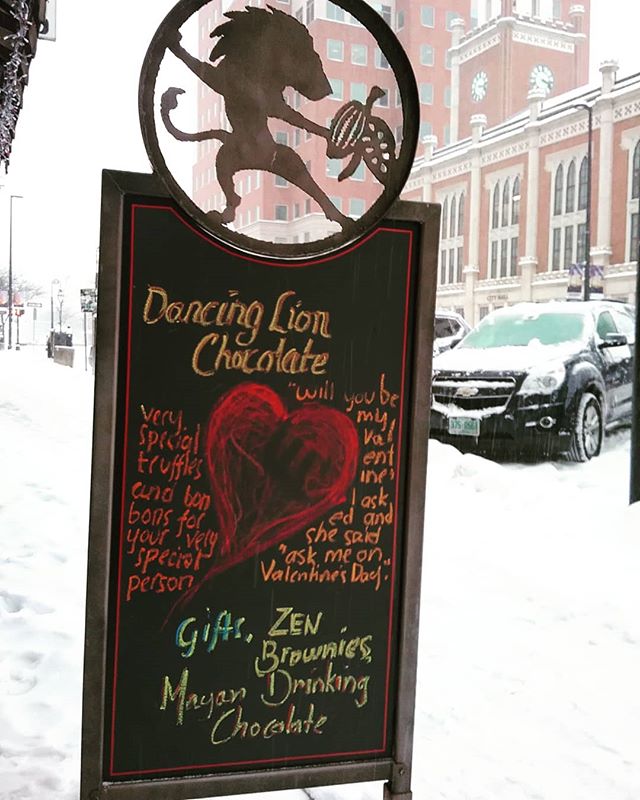 Dancing Lion
Chocolate
very
special
truffles
and bon
bons for
your very
special
person
"will you be
my
val
ent
ine's
I ask
ed and
she said
"ask me on
Valentine's Day."
Gifts, ZEN
Brownies,
Mayan Drinking
Chocolate
CITY HALL